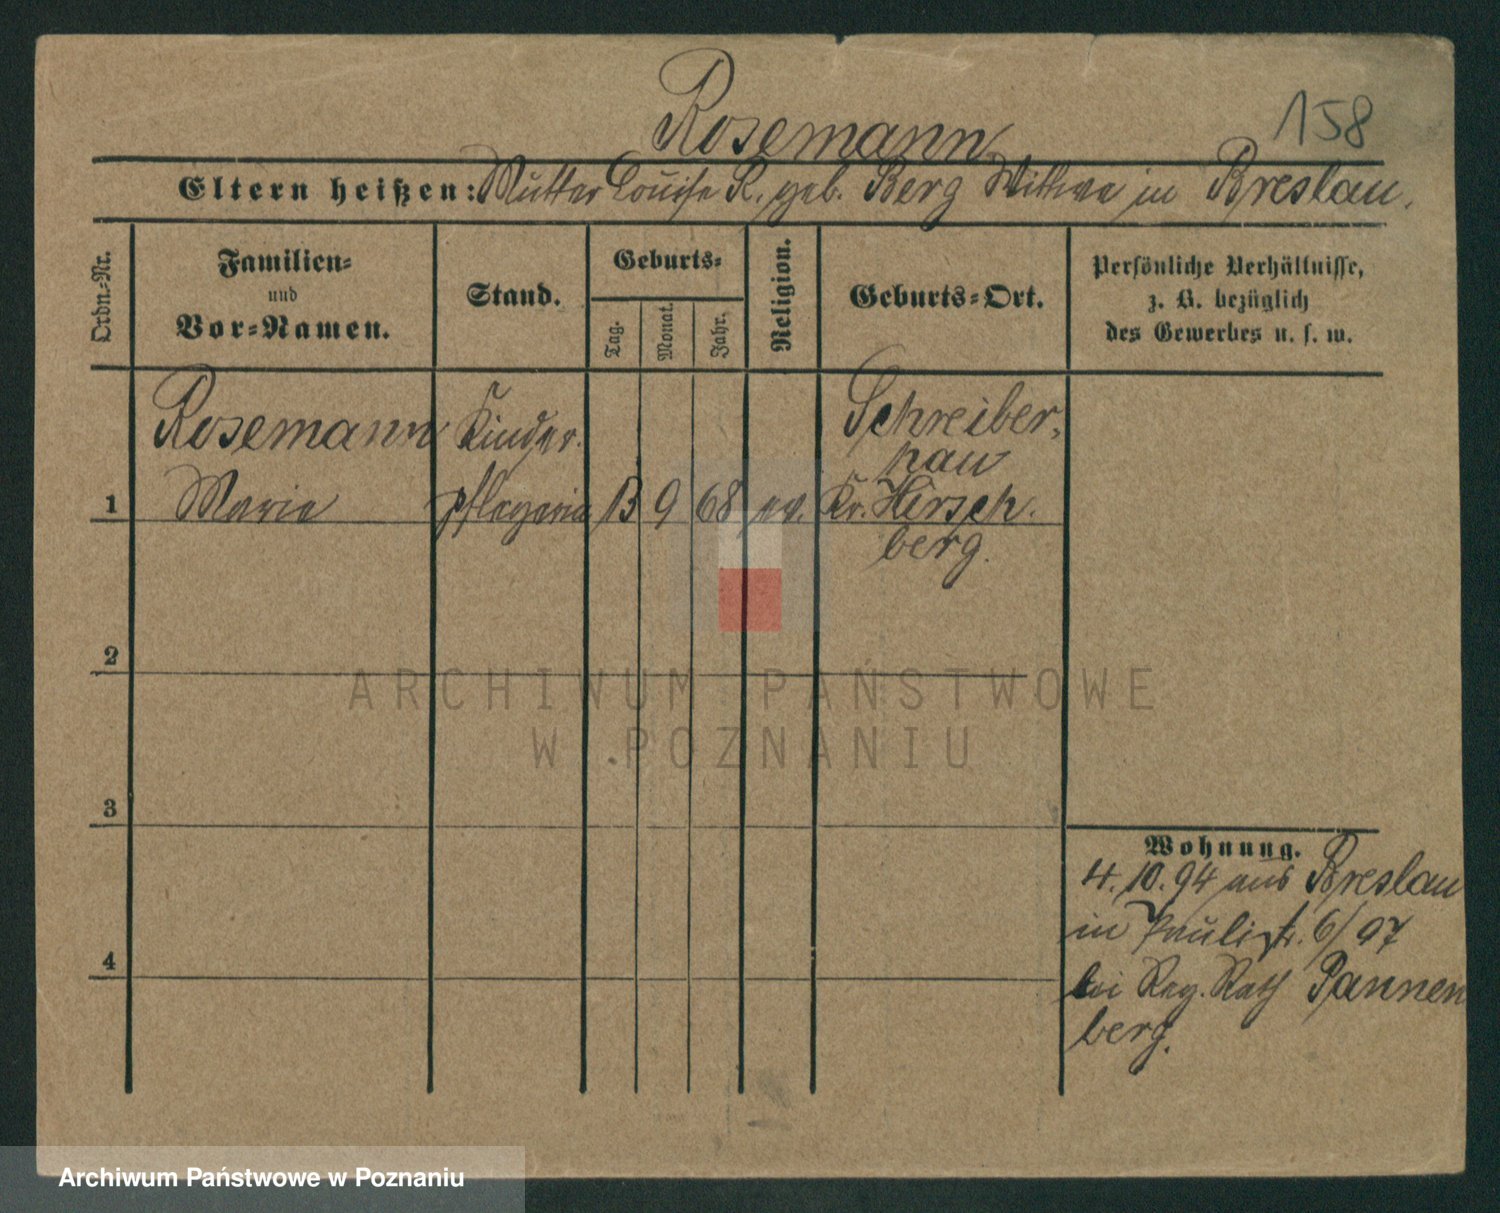 Rosemann
158
Eltern heißen: Mutter Louise R. geb. Berg Wittwe in Breslau.
Ordn.-Nr.
Familien- und Vor-Namen.
Stand.
Geburts-
Tag.
Monat.
Jahr.
Religion.
Geburts-Ort.
Persönliche Verhältnisse,
z. B. bezüglich
des Gewerbes u. s. w.
Rosemann Kinder- Schreiber-
hau
1 Marie pflegerin 13 9 68 ev. Kr. Hirsch-
berg.
2
3
4
Wohnung.
4.10.94 aus Breslau
in Paulistr. 6/97
bei Reg. Rath Pannen
berg.
ARCHIWUM PAŃSTWOWE
W POZNANIU
Archiwum Państwowe w Poznaniu